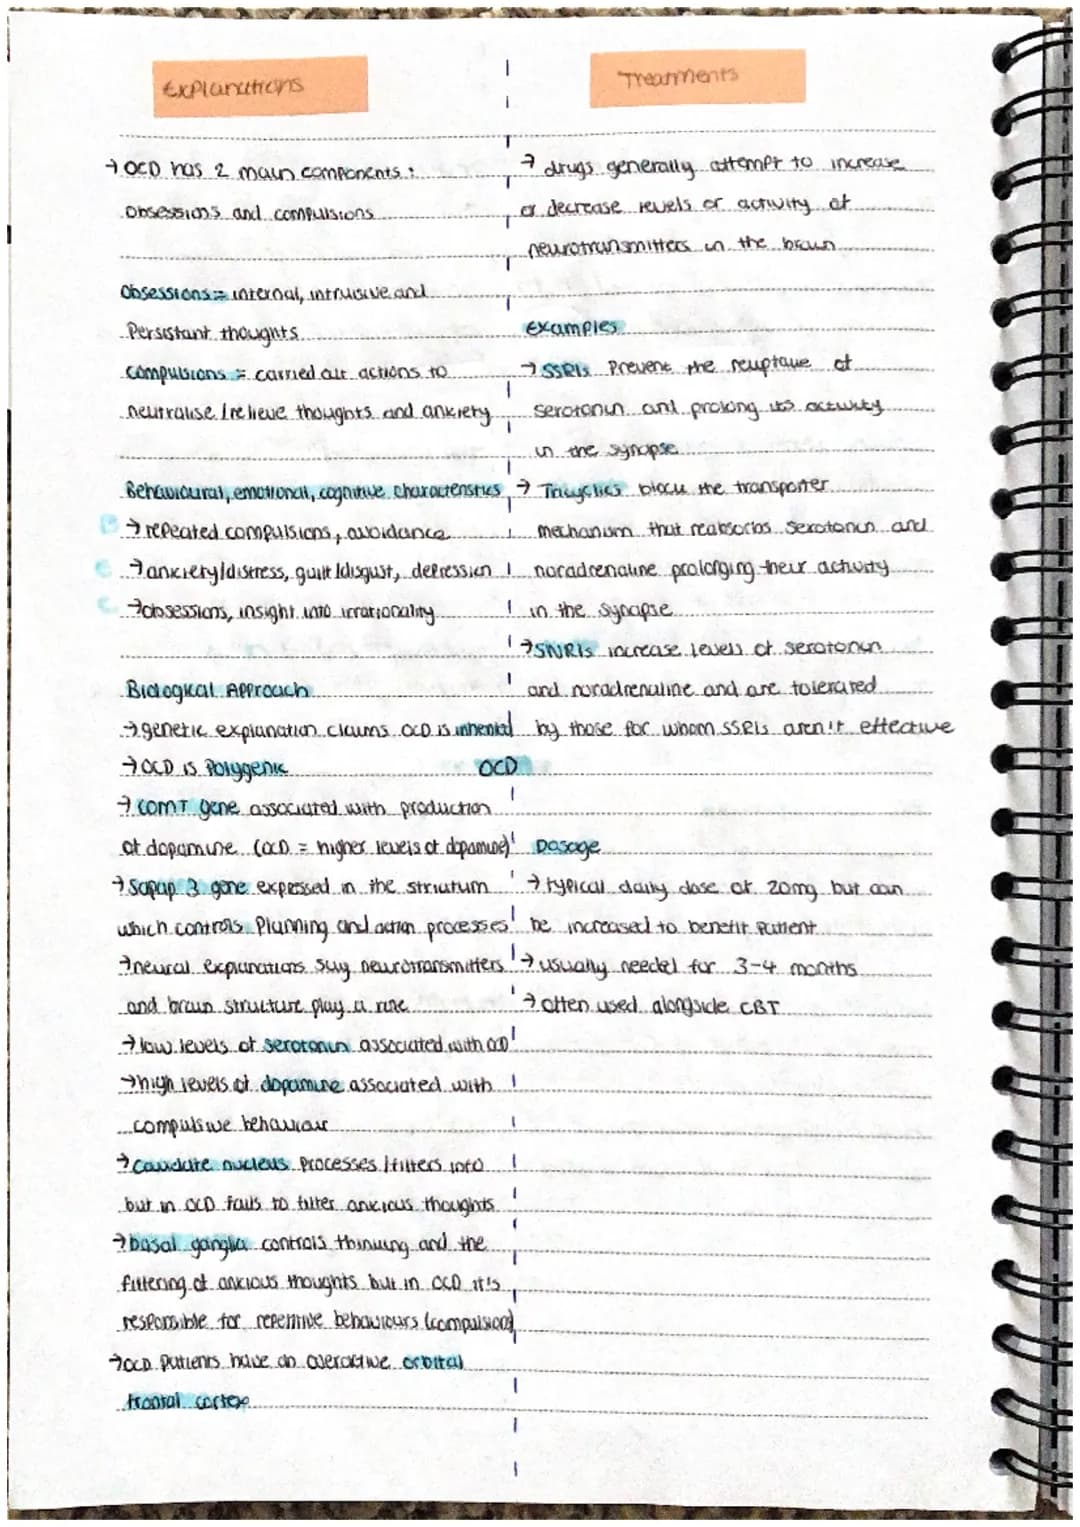 Explanations
→ OCD has 2 main components:
obsessions and compulsions
Obsessions = internal, intrusive and
Persistant thoughts
Compulsions = carried out actions to
neutralise/relieve thoughts and anxiety
Behavioural, emotional, cognitive characteristics
B → repeated compulsions, avoidance
E → anxiety/distress, guilt/disgust, depression
C → obsessions, insight into irrationality
Biological Approach
→ genetic explanation claims OCD is inherited
→ OCD is Polygenic
→ COMT gene associated with production
of dopamine (OCD = higher levels of dopamine)
→ Sapap 3 gene expressed in the striatum
which controls Planning and action processes
→ neural explanations say neurotransmitters
and brain structure play a role
→ low levels of serotonin associated with OCD
→ high levels of dopamine associated with
compulsive behaviour
→ caudate nucleus Processes/filters info
but in OCD fails to filter anxious thoughts
→ basal ganglia controls thinking and the
filtering of anxious thoughts but in OCD it's
responsible for repetitive behaviours (compulsions)
→ OCD patients have an overactive orbital
frontal cortex
OCD
Treatments
→ drugs generally attempt to increase
or decrease levels or activity of
neurotransmitters in the brain
Examples
→ SSRIs Prevent the reuptake of
serotonin and prolong its activity
in the synapse
→ Tricyclics block the transporter
mechanism that reabsorbs serotonin and
noradrenaline prolonging their activity
in the synapse
→ SNRIs increase levels of serotonin
and noradrenaline and are tolerated
by those for whom SSRIs aren't effective
Dosage
→ typical daily dose of 20mg but can
be increased to benefit patient
→ usually needed for 3-4 months
→ often used alongside CBT